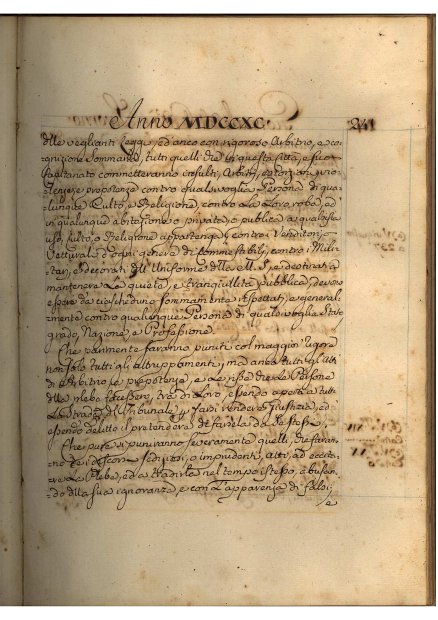 Anno MDCCXC. 241
dlle veglianti Leggi, ed anco con rigoroso Arbitrio, e co-
gnizione Sommaria, tutti quelli che in questa Città, e suo
Capitanato commetteranno insulti, Arbitrj, estorsioni, vio-
lenze, e prepotenze contro qualsivoglia Persona di qua-
lunque Culto, e Religione, contro la Loro roba, ed
in qualunque abitazione o privata, o pubblica a qualsisia
uso, culto, o Religione appartenga, contro i Venditori, o
Vetturali d'ogni genere di Commestibili, contro i Mili-
tari, e decorati dll' Uniforme dlla M. S., e destinati a
mantenere la quiete, e tranquillità pubblica, dovendo
essere da ciascheduno sommamente rispettati, e general-
mente contro qualunque Persona di qualsivoglia Stato
grado, Nazione, e Professione.
Che parimente saranno puniti col maggior rigore
non solo tutti gli attruppamenti, ma anco tutti gli Atti
di Arbitrio, e prepotenza, e le risse che le Persone
dlla plebe facessero tra di Loro, essendo aperta a tutti
La strada dll Tribunale farsi rendere giustizia, ed
essendo delitto il pretendere di farsela da se stessi.
Che pure si puniranno severamente quelli, che faran-
no de' discorsi sediziosi, o imprudenti, atti, ad eccita-
re la Plebe, ed a tradirla nel tempo istesso, abusan-
do dlla sua ignoranza, e con l'apparenza di falsi;